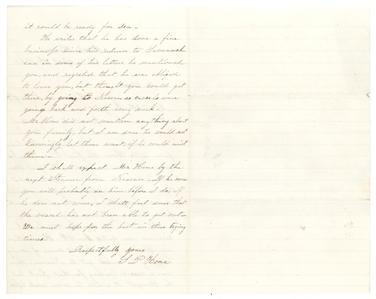 it could be ready for sea.
He writes that he has done a fine
business since his return to Savannah
and in some of his letters he mentioned
you and regretted that he was obliged
to leave you, but thought you would get
there, by going to Nassau as vessels were
going back and forth every week.
Mr Hone did not mention anything about
your family, but I am sure he would not
knowingly let them want, if he could assist
them.
I shall expect Mr Hone by the
next Steamer from Nassau. If he comes
you will probably see him before I do, if
he does not come, I shall feel sure that
the vessel has not been able to get out.
We must hope for the best in these trying
times.
Respectfully yours
Hone